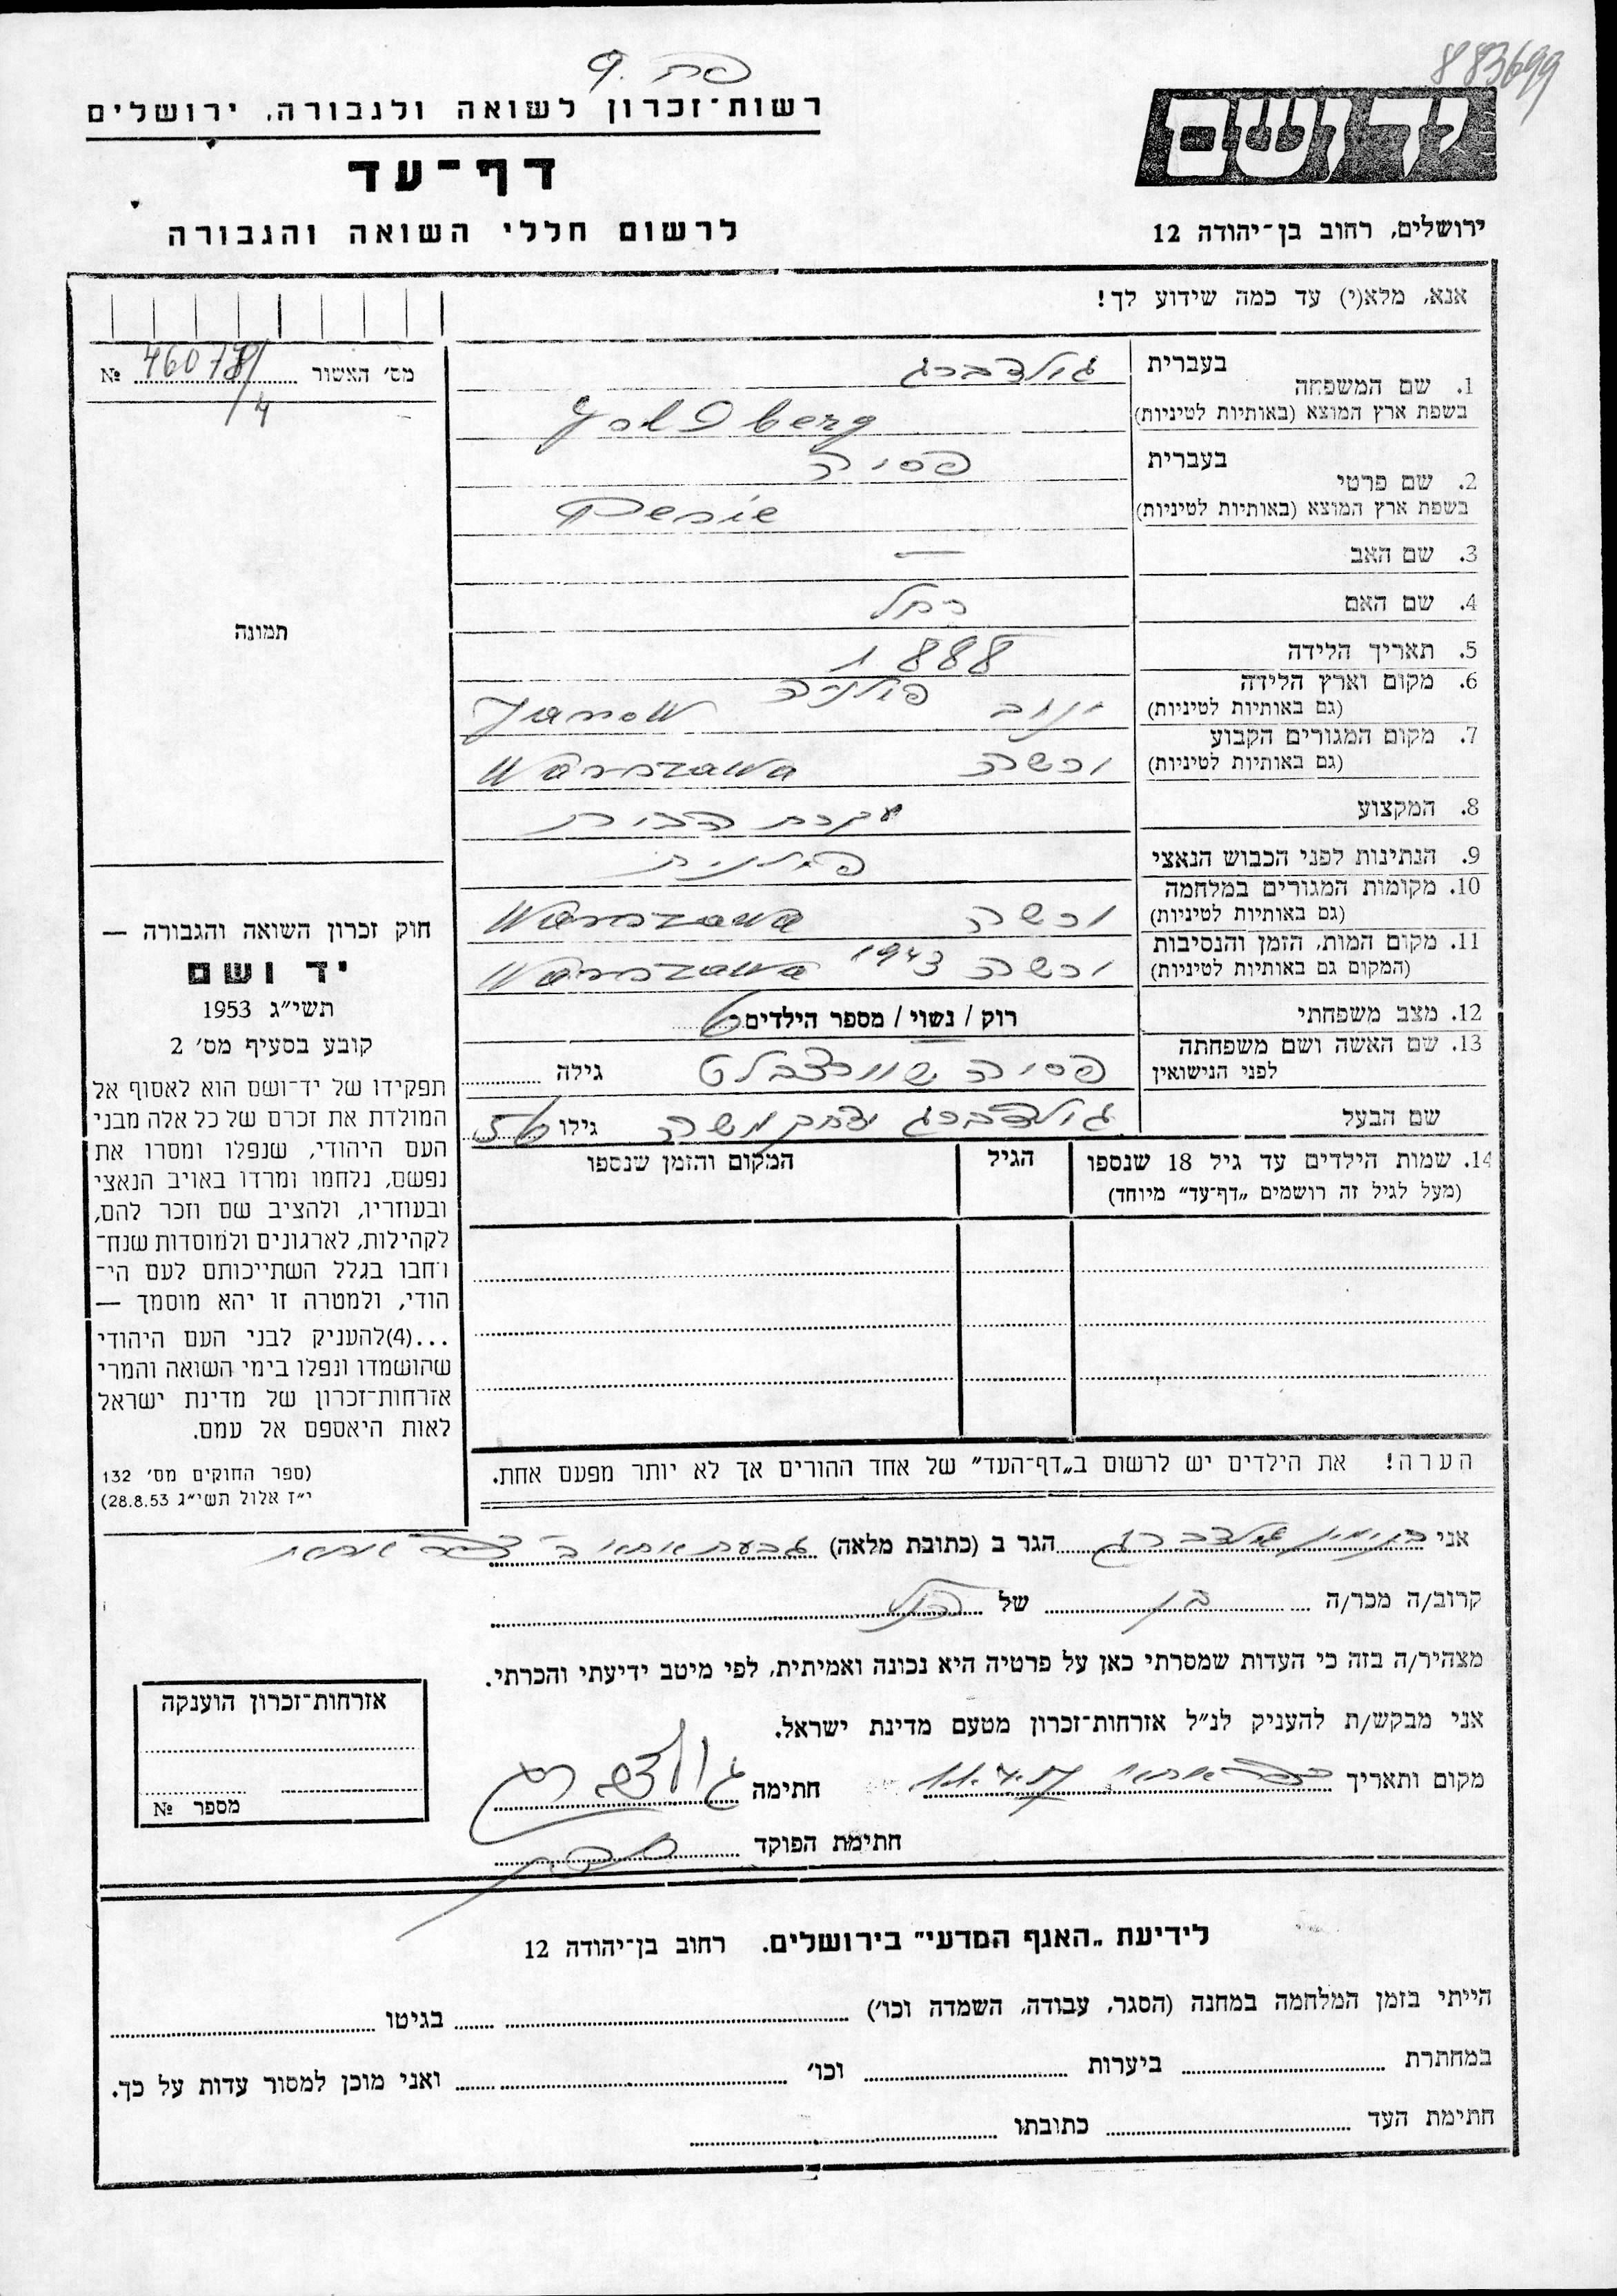 883699
פח. 9
רשות־זכרון לשואה ולגבורה, ירושלים
דף־עד
לרשום חללי השואה והגבורה
ידושם
ירושלים, רחוב בן־יהודה 12
אנא, מלא(י) עד כמה שידוע לך!
מס׳ האשור № 46078/4
תמונה
1. שם המשפחה בעברית גולדברג
בשפת ארץ המוצא (באותיות לטיניות) Goldberg
2. שם פרטי בעברית פסיה
בשפת ארץ המוצא (באותיות לטיניות) Pesie
3. שם האב —
4. שם האם רחל
5. תאריך הלידה 1888
6. מקום וארץ הלידה (גם באותיות לטיניות) ינוב פולניה Janow
7. מקום המגורים הקבוע (גם באותיות לטיניות) ורשה Warszawa
8. המקצוע עקרת הבית
9. הנתינות לפני הכבוש הנאצי פולנית
10. מקומות המגורים במלחמה (גם באותיות לטיניות) ורשה Warszawa
11. מקום המות, הזמן והנסיבות (המקום גם באותיות לטיניות) ורשה 1943 Warszawa
12. מצב משפחתי רוק / נשוי / מספר הילדים 6
13. שם האשה ושם משפחתה לפני הנישואין פסיה שוורצבלט גילה
שם הבעל גולדברג יצחק משה גילו 56
14. שמות הילדים עד גיל 18 שנספו
(מעל לגיל זה רושמים „דף־עד״ מיוחד)
הגיל
המקום והזמן שנספו
הערה! את הילדים יש לרשום ב„דף־העד״ של אחד ההורים אך לא יותר מפעם אחת.
חוק זכרון השואה והגבורה —
יד ושם
תשי״ג 1953
קובע בסעיף מס׳ 2
תפקידו של יד־ושם הוא לאסוף אל
המולדת את זכרם של כל אלה מבני
העם היהודי, שנפלו ומסרו את
נפשם, נלחמו ומרדו באויב הנאצי
ובעוזריו, ולהציב שם וזכר להם,
לקהילות, לארגונים ולמוסדות שנח־
רחבו בגלל השתייכותם לעם הי־
הודי, ולמטרה זו יהא מוסמך —
...(4)להעניק לבני העם היהודי
שהושמדו ונפלו בימי השואה והמרי
אזרחות־זכרון של מדינת ישראל
לאות היאספם אל עמם.
(ספר החוקים מס׳ 132
י״ז אלול תשי״ג 28.8.53)
אני בנימין גולדברג הגר ב (כתובת מלאה) גבעת
קרוב/ה מכר/ה בן של הנ״ל
מצהיר/ה בזה כי העדות שמסרתי כאן על פרטיה היא נכונה ואמיתית, לפי מיטב ידיעתי והכרתי.
אני מבקש/ת להעניק לנ״ל אזרחות־זכרון מטעם מדינת ישראל.
מקום ותאריך חתימה גולדברג
חתימת הפוקד
אזרחות־זכרון הוענקה
מספר №
לידיעת „האגף המדעי״ בירושלים. רחוב בן־יהודה 12
הייתי בזמן המלחמה במחנה (הסגר, עבודה, השמדה וכו׳) בגיטו
במחתרת ביערות וכו׳ ואני מוכן למסור עדות על כך.
חתימת העד כתובתו